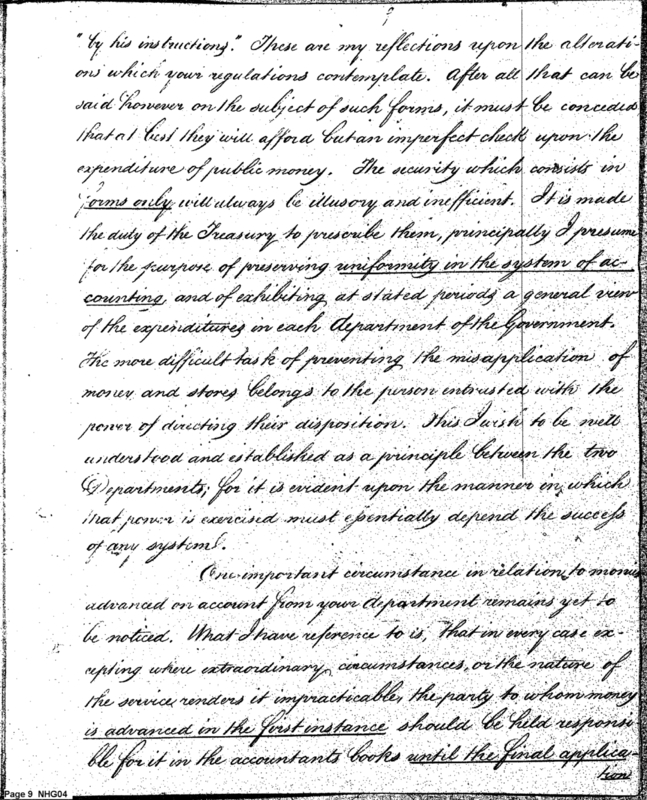 9
"by his instructions." These are my reflections upon the alterati-
ons which your regulations contemplate. After all that can be
said however on the subject of such forms, it must be conceded
that at best they will afford but an imperfect check upon the
expenditure of public money. The security which consists in
forms only will always be illusory and inefficient. It is made
the duty of the Treasury to prescribe them, principally I presume
for the purpose of preserving uniformity in the system of ac-
counting, and of exhibiting at stated periods a general view
of the expenditures in each department of the Government.
The more difficult task of preventing the misapplication of
money and stores belongs to the person intrusted with the
power of directing their disposition. This I wish to be well
understood and established as a principle between the two
Departments; for it is evident upon the manner in which
that power is exercised must essentially depend the success
of any system.
One important circumstance in relation to monies
advanced on account from your department remains yet to
be noticed. What I have reference to is, that in every case ex-
cepting where extraordinary circumstances, or the nature of
the service, renders it impracticable, the party to whom money
is advanced in the first instance should be held responsi-
ble for it in the accountants books until the final applica-
tion
Page 9 NHG04